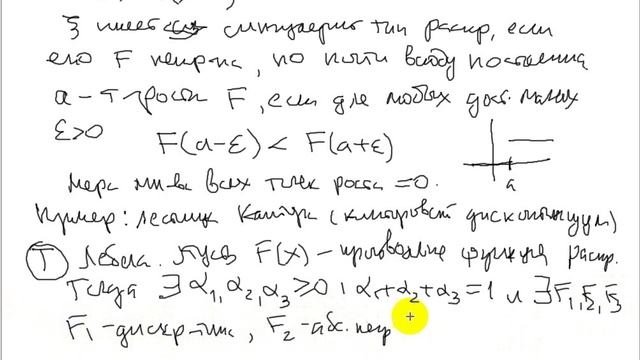 ξ имеет сингулярный тип распр, если
его F непр-на, но почти всюду постоянна
a – т. роста F, если для любых дост. малых
ε>0 F(a-ε) < F(a+ε)
a
мера мн-ва всех точек роста =0.
Пример: лестница Кантора (канторовский дисконтинуум)
Т Лебега. Пусть F(x) – произвольная функция распр.
Тогда ∃ α₁, α₂, α₃ ≥0 : α₁+α₂+α₃=1 и ∃ F₁, F₂, F₃
F₁ - дискр. типа, F₂ - абс. непр